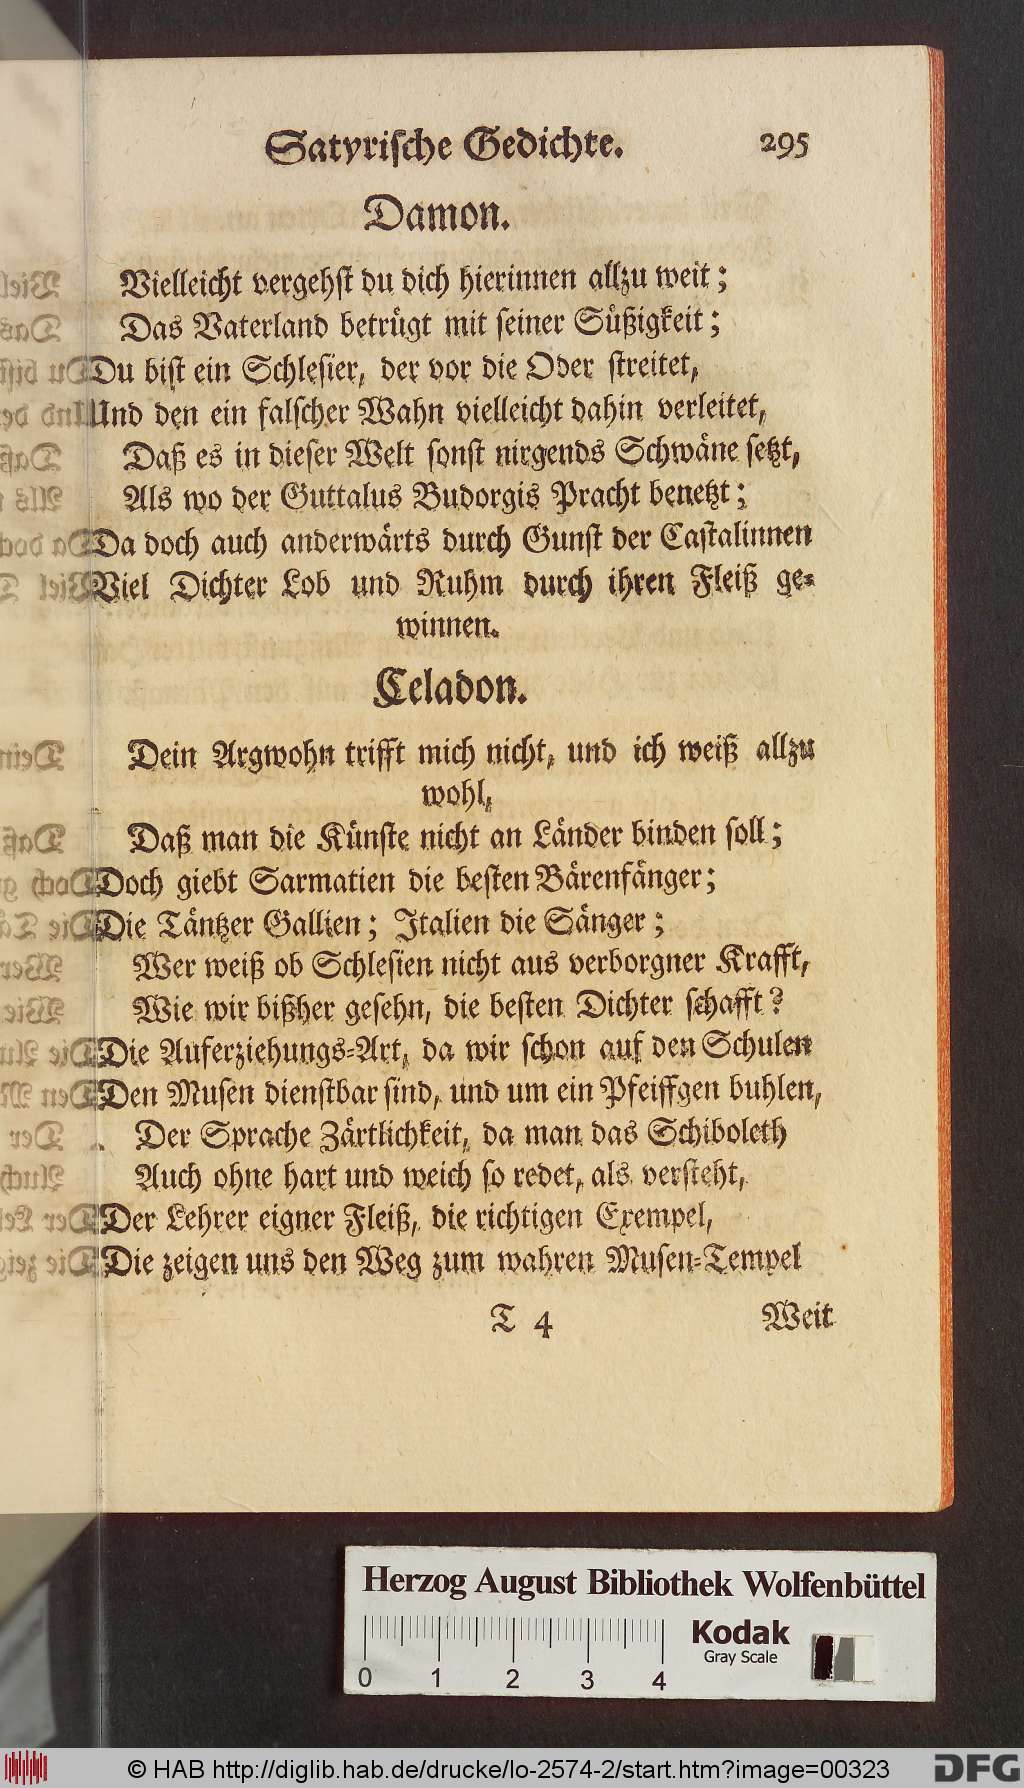 Satyrische Gedichte. 295
Damon.
Vielleicht vergehst du dich hierinnen allzu weit;
Das Vaterland betrügt mit seiner Süßigkeit;
Du bist ein Schlesier, der vor die Oder streitet,
Und den ein falscher Wahn vielleicht dahin verleitet,
Daß es in dieser Welt sonst nirgends Schwäne setzt,
Als wo der Guttalus Budorgis Pracht benetzt;
Da doch auch anderwärts durch Gunst der Castalinnen
Viel Dichter Lob und Ruhm durch ihren Fleiß ge-
winnen.
Celadon.
Dein Argwohn trifft mich nicht, und ich weiß allzu
wohl,
Daß man die Künste nicht an Länder binden soll;
Doch giebt Sarmatien die besten Bärenfänger;
Die Täntzer Gallien; Italien die Sänger;
Wer weiß ob Schlesien nicht aus verborgner Krafft,
Wie wir bißher gesehn, die besten Dichter schafft?
Die Auferziehungs-Art, da wir schon auf den Schulen
Den Musen dienstbar sind, und um ein Pfeiffgen buhlen,
Der Sprache Zärtlichkeit, da man das Schiboleth
Auch ohne hart und weich so redet, als versteht,
Der Lehrer eigner Fleiß, die richtigen Exempel,
Die zeigen uns den Weg zum wahren Musen-Tempel
T 4 Weit
Herzog August Bibliothek Wolfenbüttel
Kodak
Gray Scale
0 1 2 3 4
© HAB http://diglib.hab.de/drucke/lo-2574-2/start.htm?image=00323
DFG